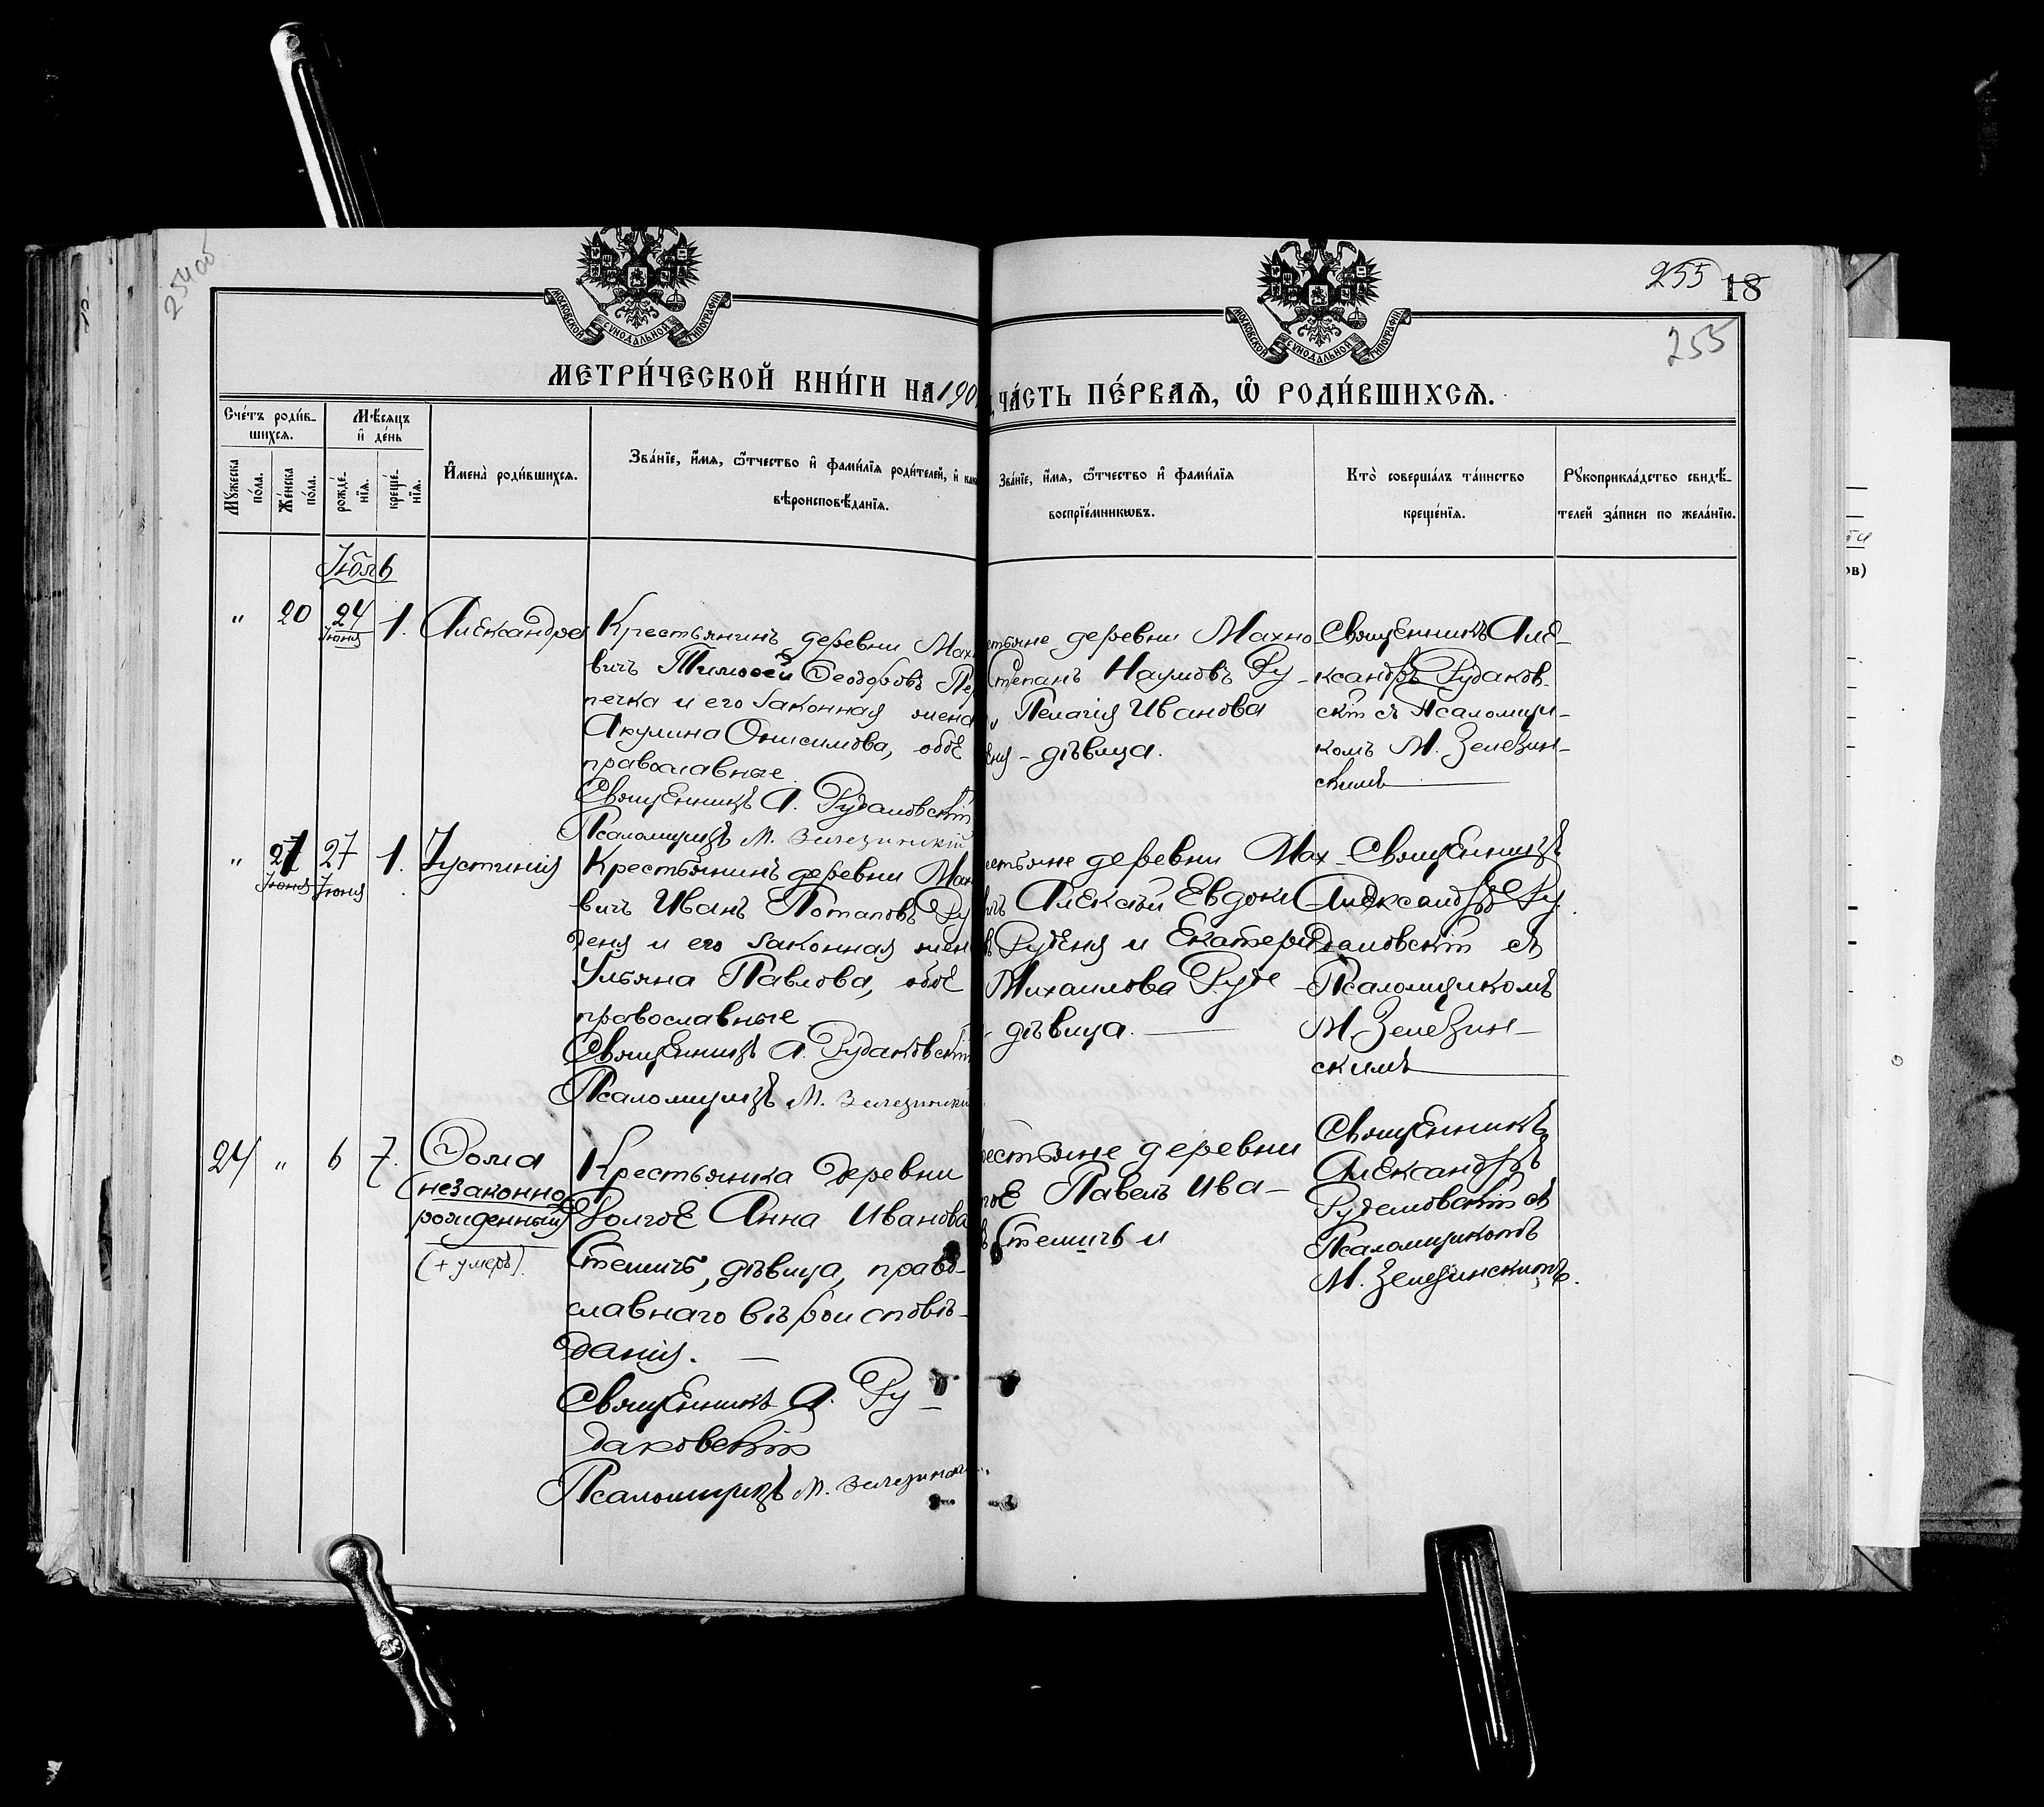 254об
255 18
255
МОСКОВСКОЙ СѴНОДАЛЬНОЙ ТИПОГРАФІИ
МОСКОВСКОЙ СѴНОДАЛЬНОЙ ТИПОГРАФІИ
МЕТРИ́ЧЕСКОЙ КНИ́ГИ НА 190
ЧА́СТЬ ПЕ́РВАѦ, Ѿ РОДИ́ВШИХСѦ.
Сче́тъ роди́в-
шихсѧ.
Мѣ́сѧцъ
и҆ де́нь
Мꙋ́жеска
по́ла.
Же́нска
по́ла.
рожде́-
нїѧ.
креще́-
нїѧ.
И҆мена̀ роди́вшихсѧ.
Зва́нїе, и҆́мѧ, ѻ҆́тчество и҆ фами́лїѧ роди́телей, и҆ как
вѣроисповѣ́данїѧ.
Зва́нїе, и҆́мѧ, ѻ҆́тчество и҆ фами́лїѧ
воспрїе́мникѡвъ.
Кто̀ соверша́лъ та́инство
креще́нїѧ.
Рꙋкоприкла́дство свидѣ́-
телей за́писи по жела́нїю.
Іюль
" 20 24 Іюня 1. Александра
Крестьянинъ деревни Мах
вичъ Тимоѳей Ѳеодоровъ Пе
печка и его законная жена
Акулина Онисимова, обое
православные
Священникъ А. Рудаковскій
Псаломщикъ М. Зелезинскій
стьяне деревни Махно
Степанъ Наумовъ Ру-
и Пелагія Иванова
еня - дѣвица.
Священникъ Але-
ксандръ Рудаков-
скій съ Псаломщи-
комъ М. Зелезин-
скимъ
" 21 Іюня 27 Іюня 1. Іустинія
Крестьянинъ деревни Мах
вичъ Иванъ Потаповъ Ру
деня и его законная жен
Ульяна Павлова, обое
православные
Священникъ А. Рудаковскій
Псаломщикъ М. Зелезински
естьяне деревни Мах-
чъ Алексѣй Евдоки
въ Руденя и Екатери
Михаилова Руде
- дѣвица.
Священникъ
Александръ Ру
даковскій съ
Псаломщикомъ
М. Зелезин-
скимъ
24 " 6 7. Ѳома
(незаконно
рожденный)
(+ умеръ).
Крестьянка деревни
Долгое Анна Иванова
Стешичъ, дѣвица, право-
славнаго вѣроисповѣ-
данія.
Священникъ А. Ру-
даковскій
Псаломщикъ М. Зелезински
рестьяне деревни
гое Павелъ Ива-
въ Стешичъ и
Священникъ
Александръ
Рудаковскій съ
Псаломщикомъ
М. Зелезинскимъ.
ов)